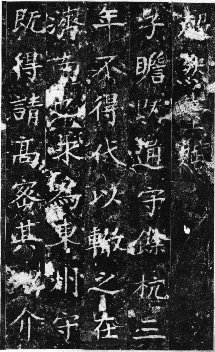 超然臺賦
子瞻以通守餘杭三
年不得代以轍之在
濟南也求為東州守
既得請高密其地介